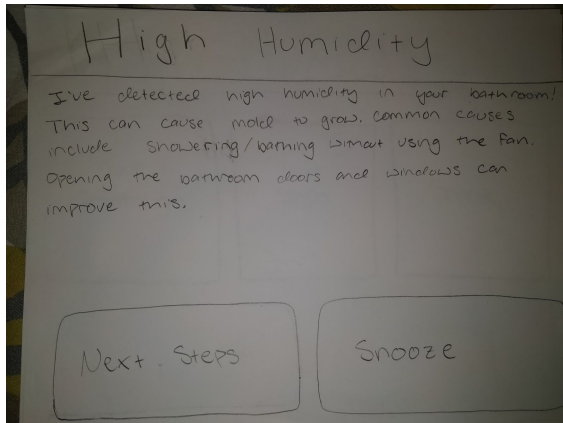 High Humidity
I've detected high humidity in your bathroom!
This can cause mold to grow. Common causes
include showering/bathing without using the fan.
Opening the bathroom doors and windows can
improve this.
Next Steps
Snooze